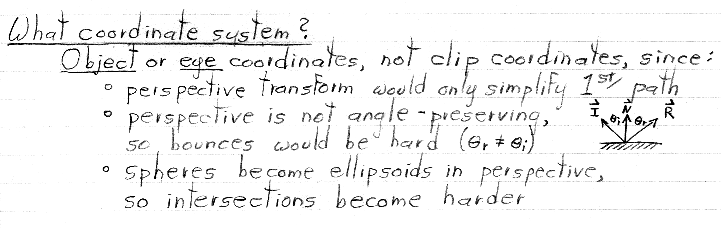 What coordinate system?
Object or eye coordinates, not clip coordinates, since:
◦ perspective transform would only simplify 1st path
◦ perspective is not angle-preserving,
so bounces would be hard (θr ≠ θi)
I⃗ θi N⃗ θr R⃗
◦ spheres become ellipsoids in perspective,
so intersections become harder